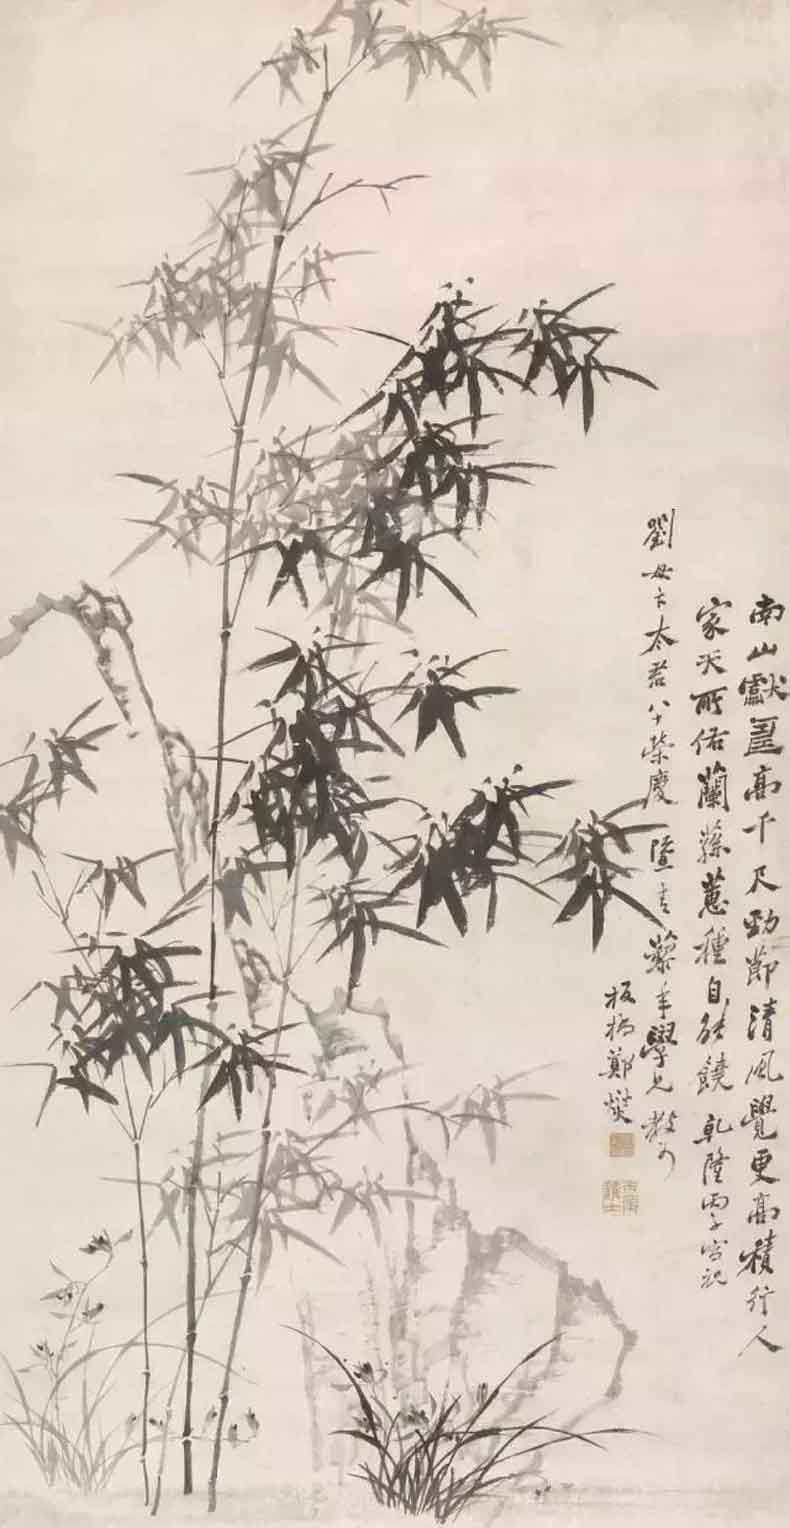 南山獻壽高千尺勁節清風覺更高積行人
家天所佑蘭蓀蕙種自能饒 乾隆丙子寫祝
劉母卞太君八十榮慶 暨青藜年學兄教可
板橋鄭燮